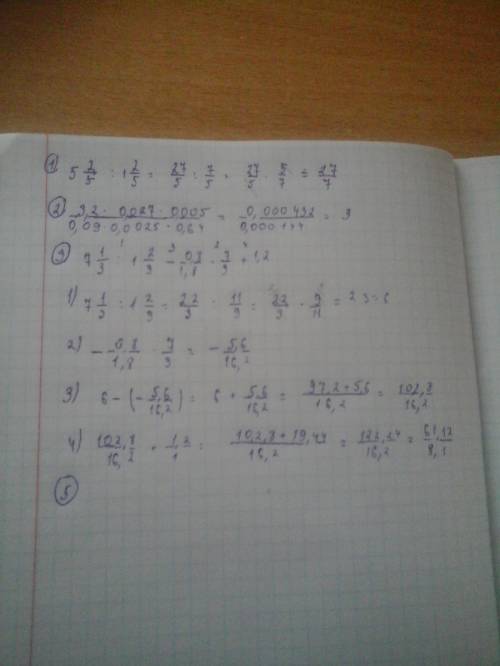 1) 5 2/5 : 1 2/5 = 27/5 : 7/5 = 27/5 · 5/7 = 27/7
2) 3,2 · 0,027 · 0,005 / 0,09 · 0,0025 · 0,64 = 0,000432 / 0,000144 = 3
3) 7 1/3 : 1 2/9 - 0,8/1,8 · 7/9 + 1,2
1) 7 1/3 : 1 2/9 = 22/3 : 11/9 = 22/3 · 9/11 = 2·3 = 6
2) - 0,8/1,8 · 7/9 = - 5,6/16,2
3) 6 - (- 5,6/16,2) = 6 + 5,6/16,2 = 97,2+5,6/16,2 = 102,8/16,2
4) 102,8/16,2 + 1,2/1 = 102,8+19,44/16,2 = 122,24/16,2 = 61,12/8,1
5